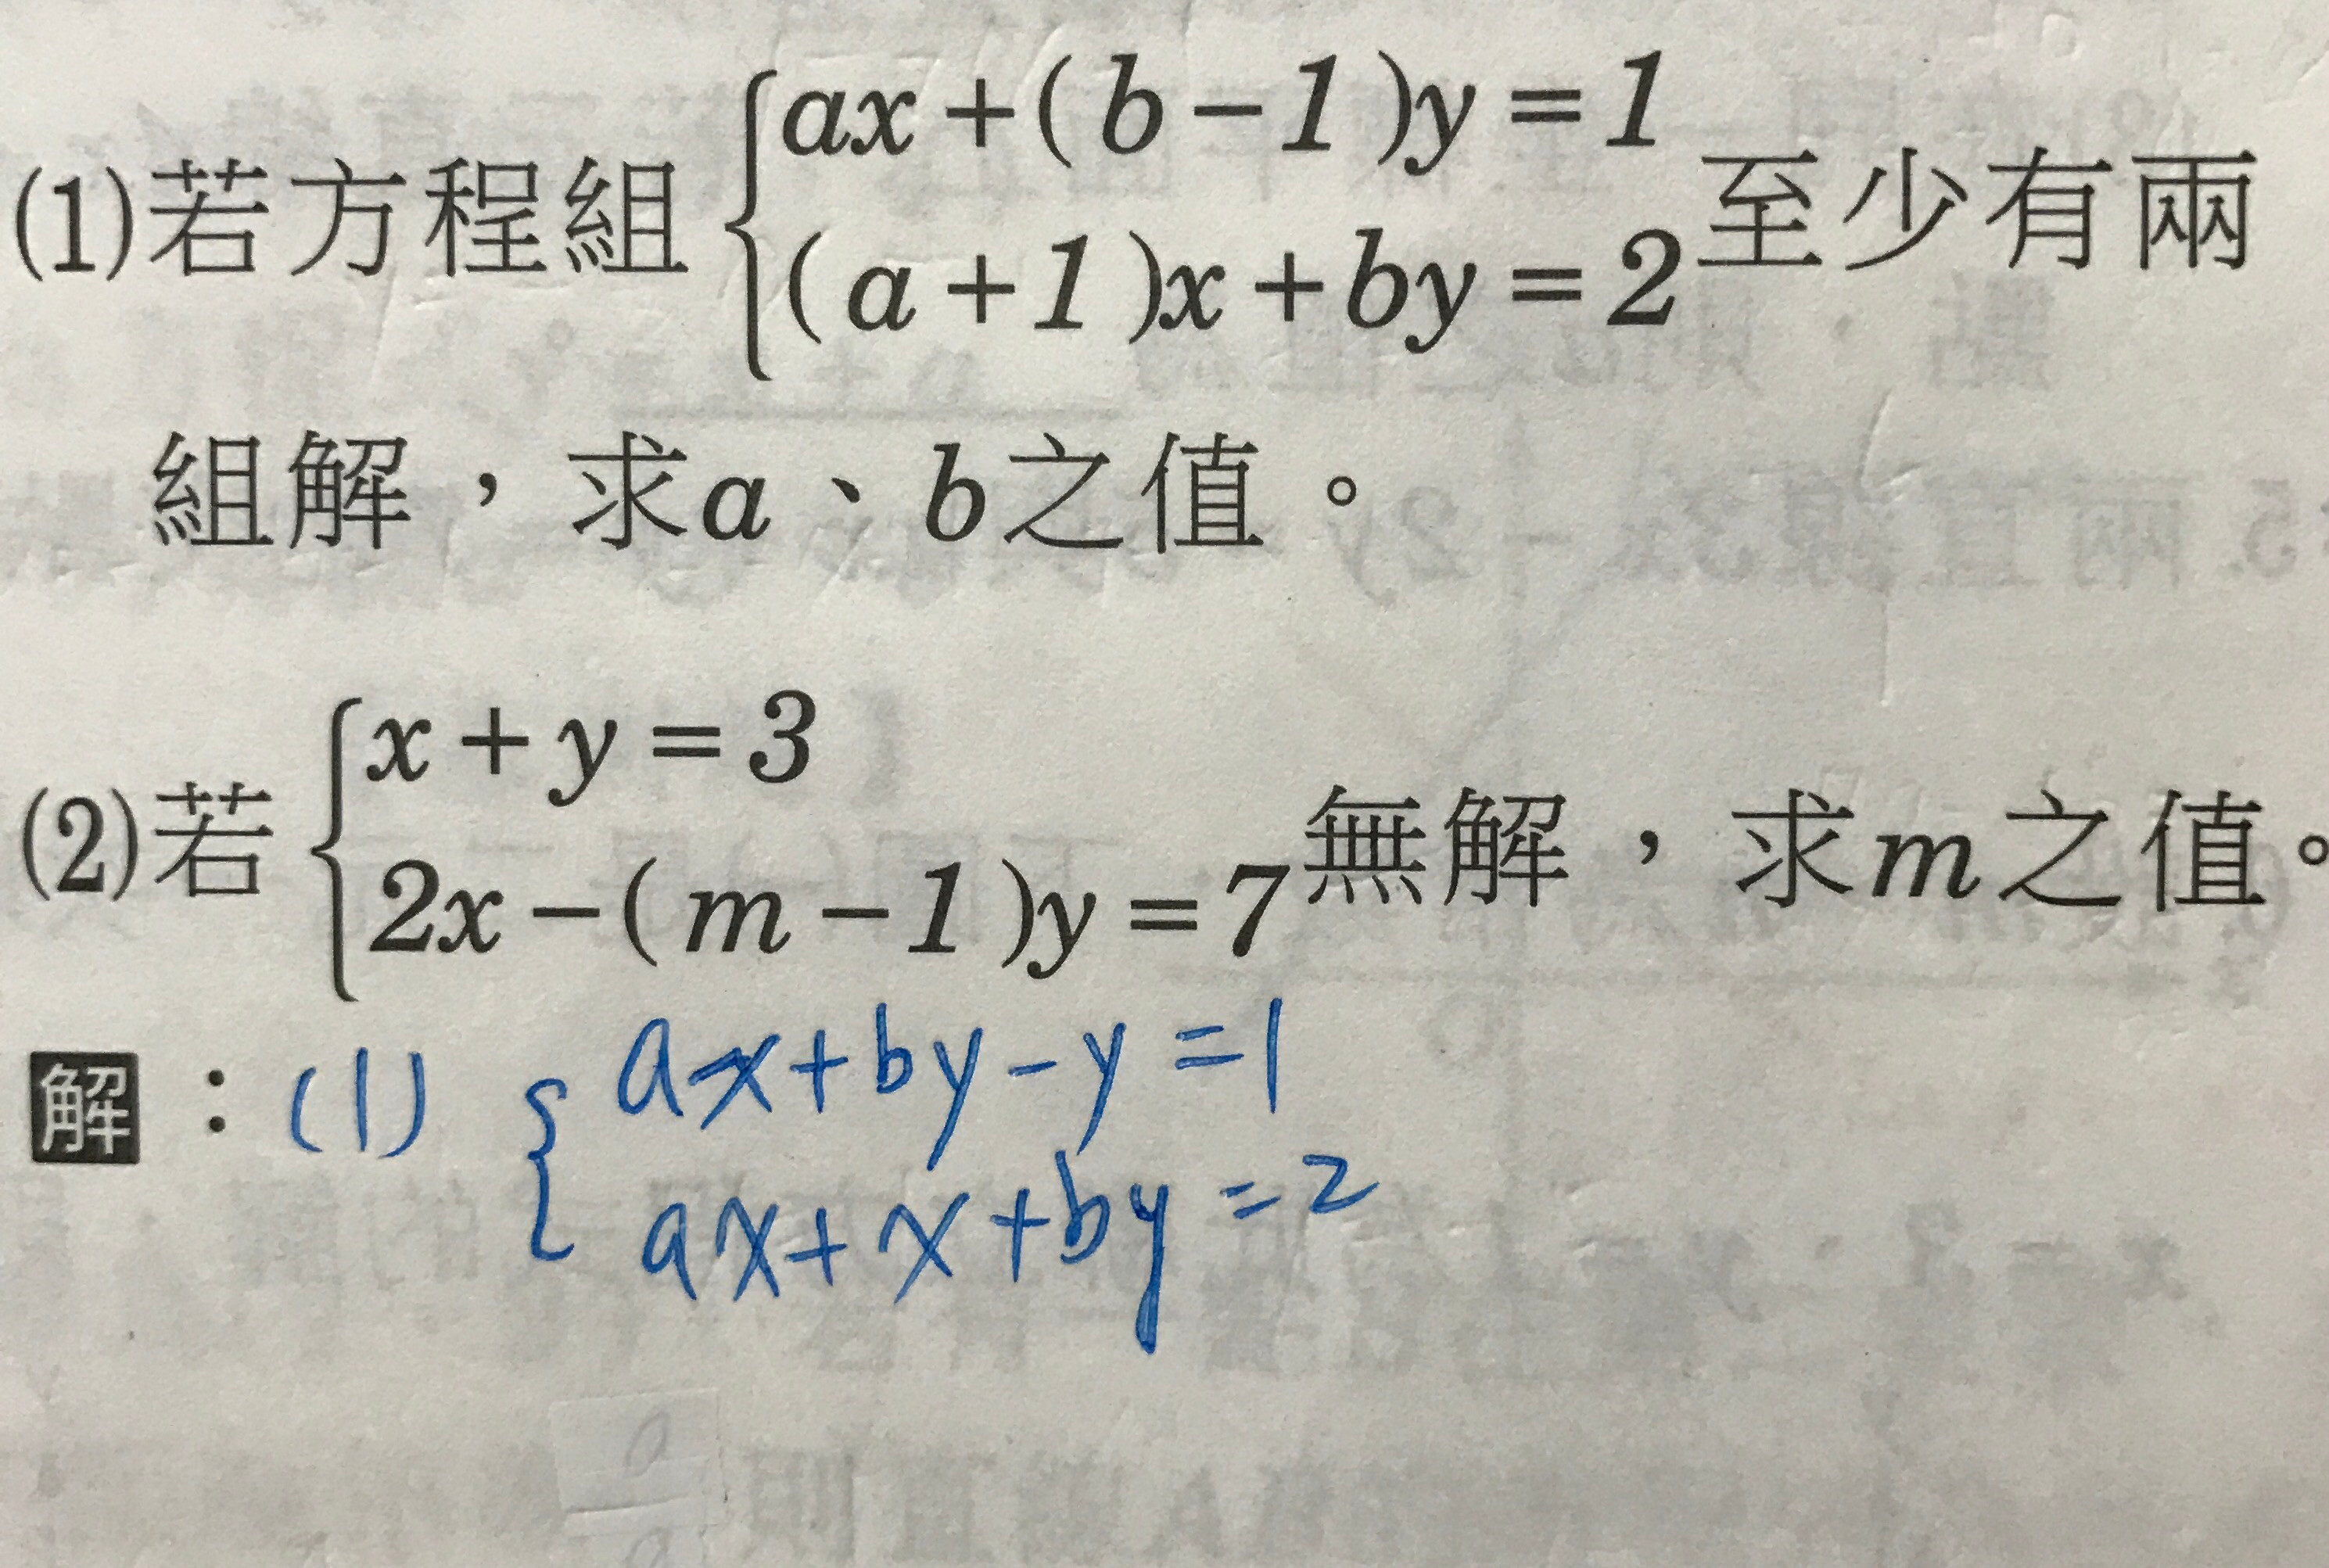 (1)若方程組{ax+(b-1)y=1
(a+1)x+by=2至少有兩
組解，求a、b之值。
(2)若{x+y=3
2x-(m-1)y=7無解，求m之值。
解：(1) {ax+by-y=1
ax+x+by=2